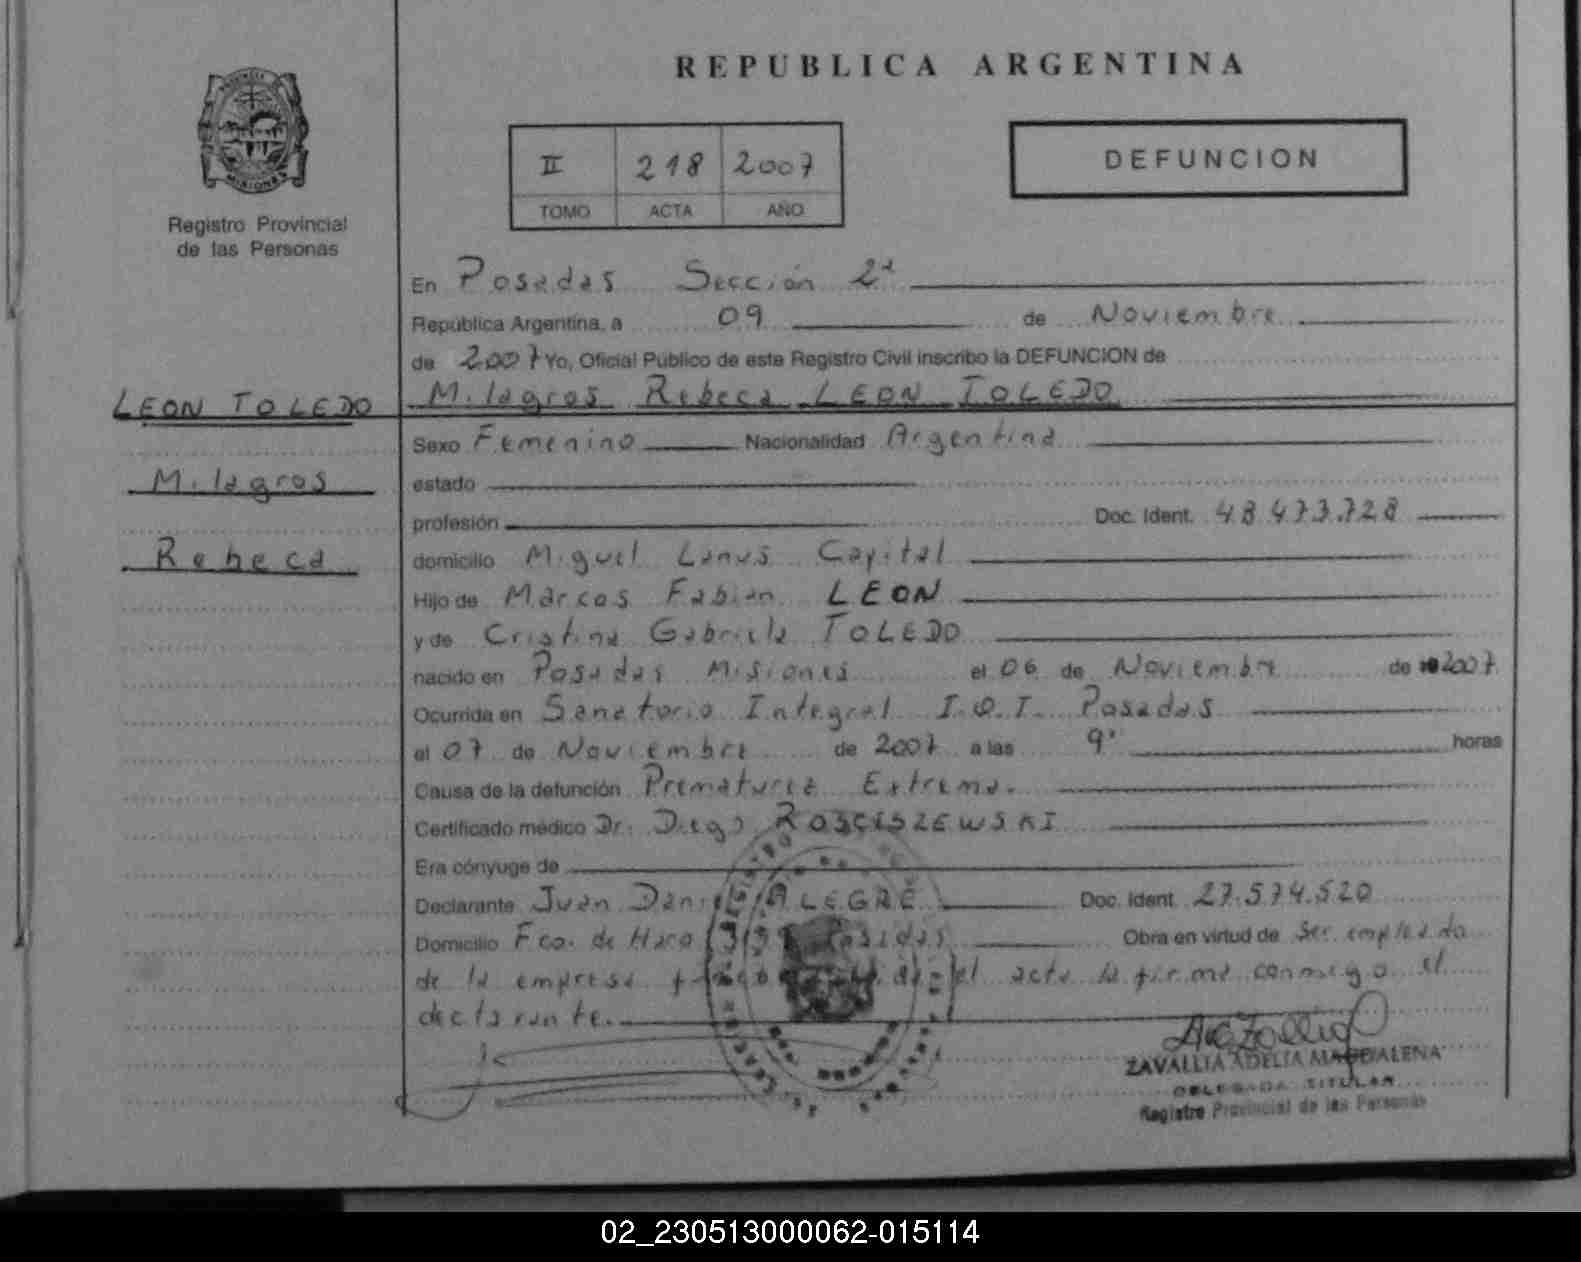 REPUBLICA ARGENTINA
PROVINCIA DE
MISIONES
Registro Provincial
de las Personas
II 218 2007
TOMO ACTA AÑO
DEFUNCION
En Posadas Sección 2ª
República Argentina, a 09 de Noviembre
de 2007 Yo, Oficial Público de este Registro Civil inscribo la DEFUNCION de
LEON TOLEDO
Milagros
Rebeca
Milagros Rebeca LEON TOLEDO
Sexo Femenino Nacionalidad Argentina
estado
profesión Doc. Ident. 48.473.728
domicilio Miguel Lanus Capital
Hijo de Marcos Fabian LEON
y de Cristina Gabriela TOLEDO
nacido en Posadas Misiones el 06 de Noviembre de 2007
Ocurrida en Sanatorio Integral I.O.T. Posadas
el 07 de Noviembre de 2007 a las 9" horas
Causa de la defunción Prematurez Extrema.
Certificado médico Dr. Diego ROSCISZEWSKI
Era cónyuge de
Declarante Juan Daniel ALEGRE Doc. Ident. 27.574.520
Domicilio Fco. de Haro Posadas Obra en virtud de Ser empleado
de la empresa el acta la firma conmigo el
declarante.
ZAVALLIA ADELIA MAGDALENA
DELEGADA TITULAR
Registro Provincial de las Personas
02_230513000062-015114